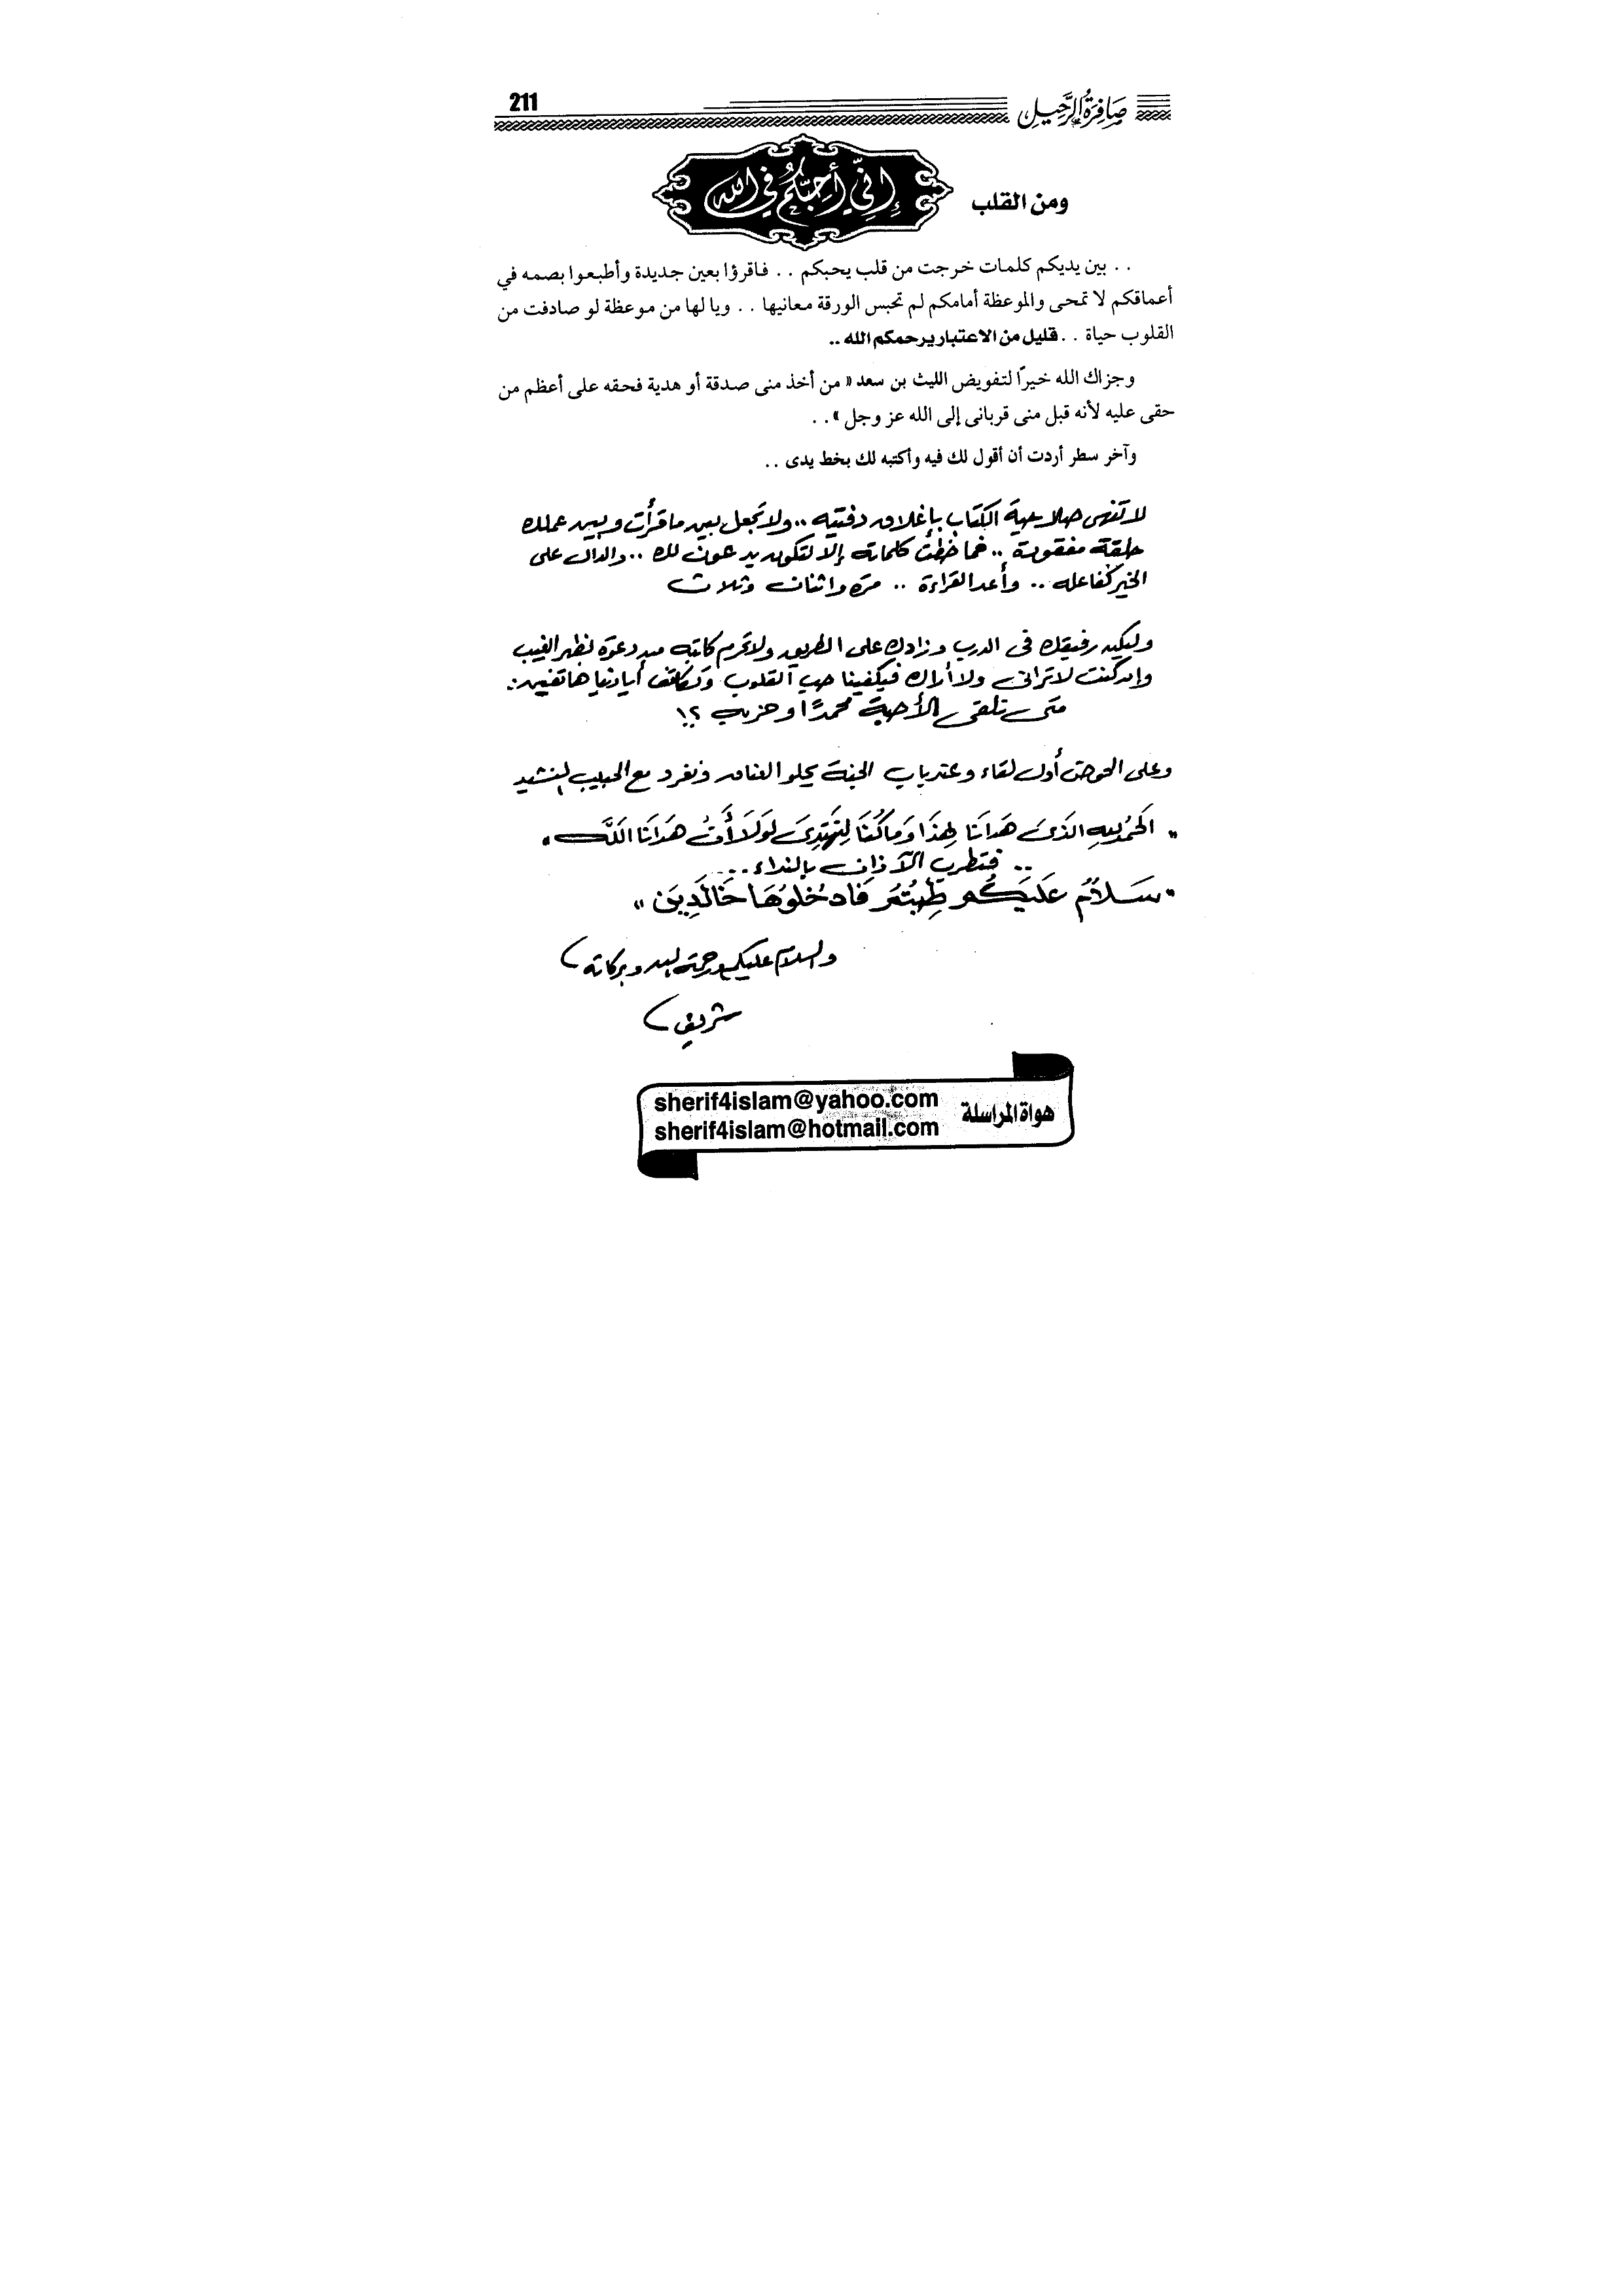 صَافِرَةُ الرَّحِيلِ 211
ومن القلب إِنِّي أُحِبُّكُمْ فِي الله
. . بين يديكم كلمات خرجت من قلب يحبكم . . فاقرؤا بعين جديدة وأطبعوا بصمه في
أعماقكم لا تمحى والموعظة أمامكم لم تحبس الورقة معانيها . . ويا لها من موعظة لو صادفت من
القلوب حياة . . قليل من الاعتبار يرحمكم الله ..
وجزاك الله خيرًا لتفويض الليث بن سعد « من أخذ منى صدقة أو هدية فحقه على أعظم من
حقى عليه لأنه قبل منى قربانى إلى الله عز وجل » . .
وآخر سطر أردت أن أقول لك فيه وأكتبه لك بخط يدى . .
لا تنهى صلاحية الكتاب بإغلاق دفتيه .. ولا تجعل بين ما قرأت وبين عملك
حلقة مفقودة .. فما خطت كلماته إلا لتكون يد عون لك .. والدال على
الخير كفاعله .. وأعد القراءة .. مرة واثنان وثلاث
وليكن رفيقك فى الدرب وزادك على الطريق ولا تحرم كاتبه من دعوة بظهر الغيب
وإن كنت لا ترانى ولا أراك فيكفينا حب القلوب وتكاتف أيادينا هاتفين :
متى نلقى الأحبة محمدًا وحزبه ؟!
وعلى الحوض أول لقاء وعند باب الجنة يحلو العناق ونغرد مع الحبيب النشيد
" الحَمْدُ للهِ الذَى هَدَانَا لِهَذَا وَمَا كُنَّا لِنَهْتَدِىَ لَوْلَا أَنْ هَدَانَا اللَّه "
.. فتطرب الآذان بالنداء ....
" سَلَامٌ عَلَيْكُم طِبْتُمْ فَادْخُلُوهَا خَالِدِينَ "
والسلام عليكم ورحمة الله وبركاته
شريف
هواة المراسلة sherif4islam@yahoo.com
sherif4islam@hotmail.com